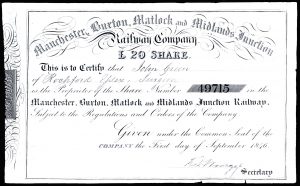 Manchester, Burton, Matlock and Midlands Junction
Railway Company.
£ 20 SHARE.
This is to Certify that John Green
of
is the Proprietor of the Share Number 49715 in the
Manchester, Burton, Matlock and Midlands Junction Railway,
Subject to the Regulations and Orders of the Company
Given under the Common Seal of the
COMPANY the First day of September 1846.
Secretary